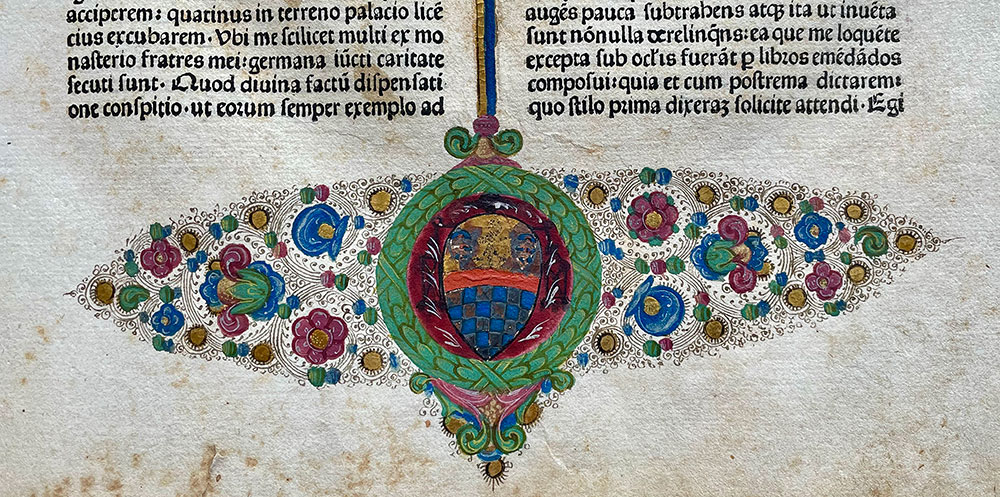 acciperem: quatinus in terreno palacio licē
cius excubarem. Vbi me scilicet multi ex mo
nasterio fratres mei: germana iūcti caritate
secuti sunt. Quod diuina factū dispensati
one conspitio. ut eorum semper exemplo ad
augēs pauca subtrahens atqꝫ ita ut inuēta
sunt nōnulla derelinqns: ea que me loquēte
excepta sub oclis fuerāt ꝑ libros emēdādos
composui: quia et cum postrema dictarem:
quo stilo prima dixeraꝫ solicite attendi. Egi